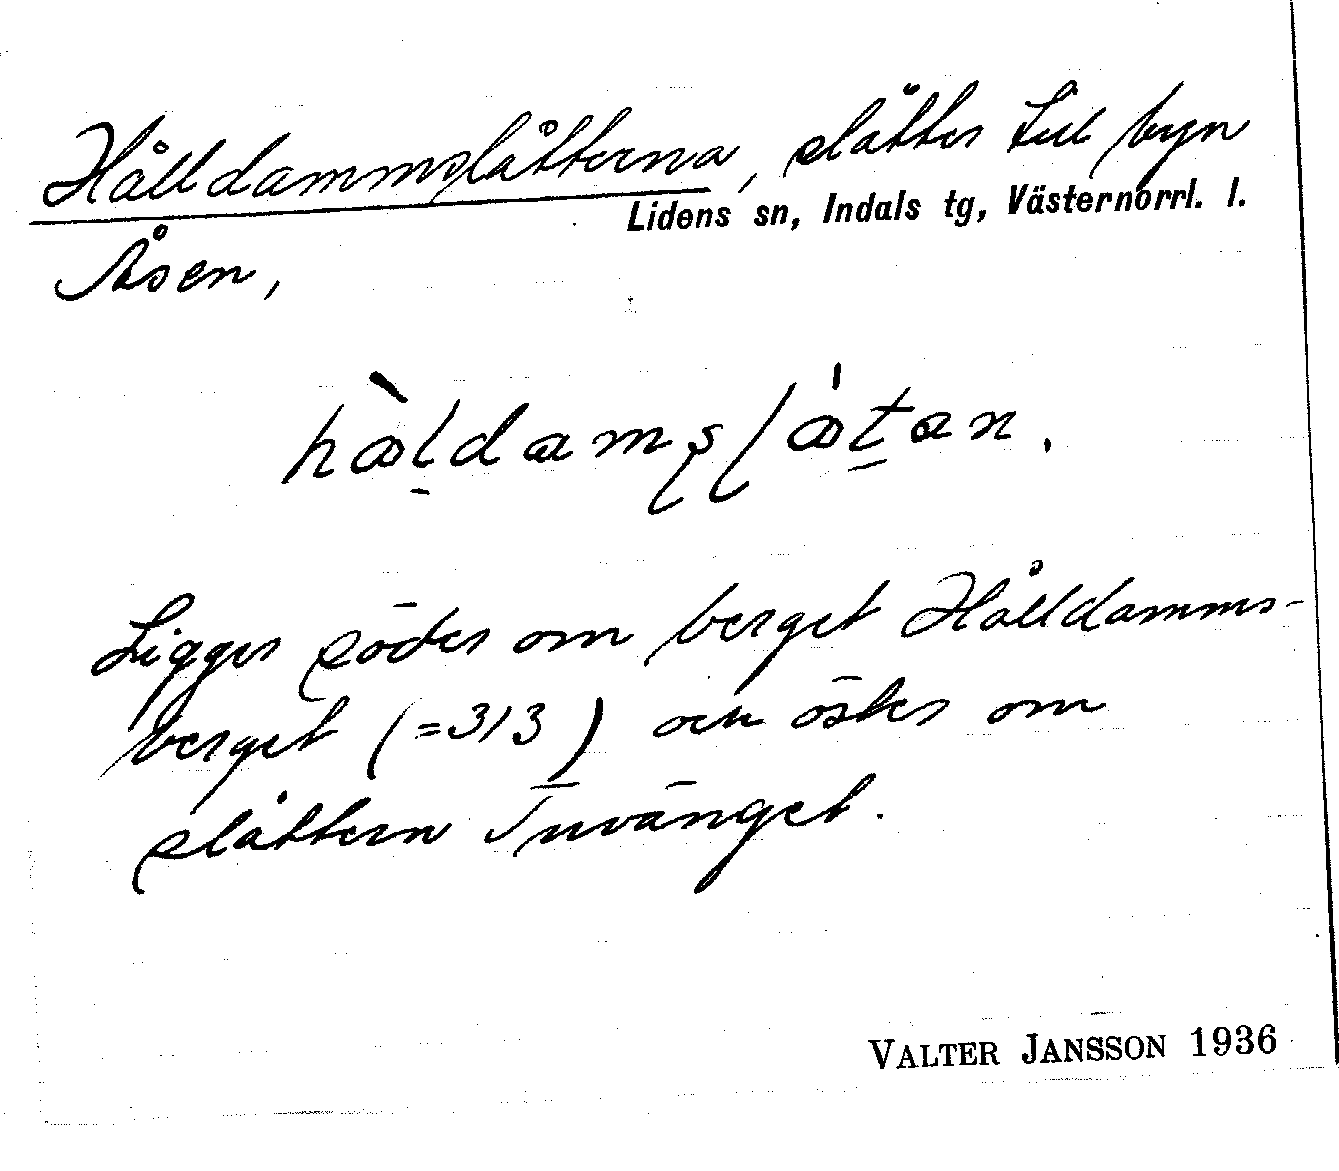 Hålldammslåtterna, slåtter till byn
Lidens sn, Indals tg, Västernorrl. l.
Åsen,
Ligger söder om berget Hålldamms-
berget (=313) och öster om
slåttern Invänget.
VALTER JANSSON 1936